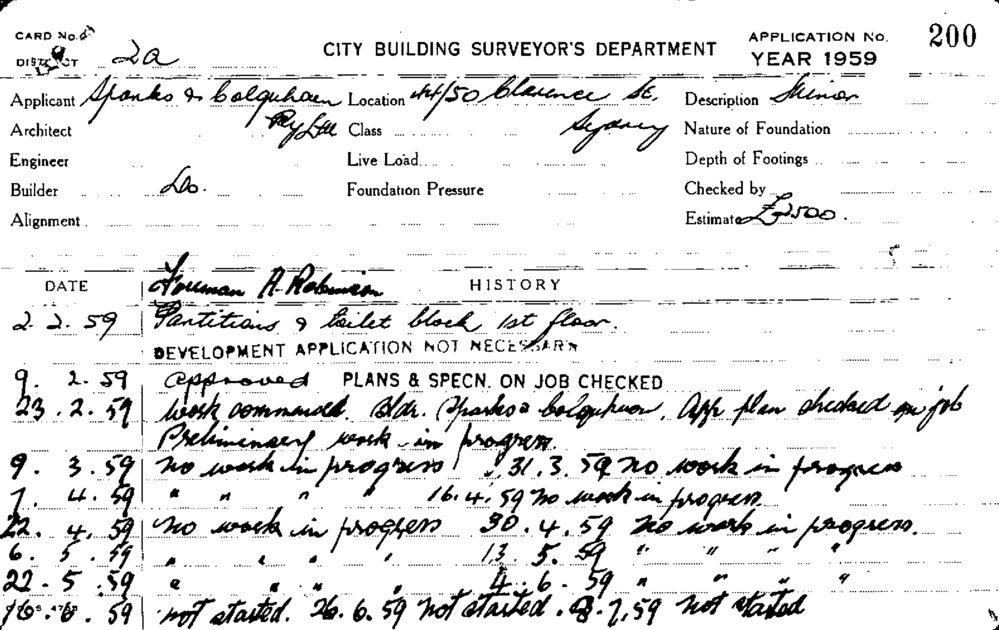 CARD No.
DISTRICT 2a
CITY BUILDING SURVEYOR'S DEPARTMENT
APPLICATION No. 200
YEAR 1959
Applicant Sparks & Colquhoun Pty Ltd Location 44/50 Clarence St. Sydney Description Minor
Architect Class Nature of Foundation
Engineer Live Load Depth of Footings
Builder Do. Foundation Pressure Checked by
Alignment Estimate £2500.
DATE Foreman A. Robinson HISTORY
2. 2. 59 Partitions & toilet block 1st floor.
DEVELOPMENT APPLICATION NOT NECESSARY
9. 2. 59 Approved PLANS & SPECN. ON JOB CHECKED
23. 2. 59 Work commenced. Bldr. Sparks & Colquhoun. App plan checked on job
Preliminary work in progress.
9. 3. 59 no work in progress 31. 3. 59 no work in progress
7. 4. 59 " " " " 16. 4. 59 no work in progress.
22. 4. 59 no work in progress 30. 4. 59 no work in progress.
6. 5. 59 " " " " 13. 5. 59 " " " "
22. 5. 59 " " " " 4. 6. 59 " " " "
16. 6. 59 not started. 26. 6. 59 not started. 8. 7. 59 not started